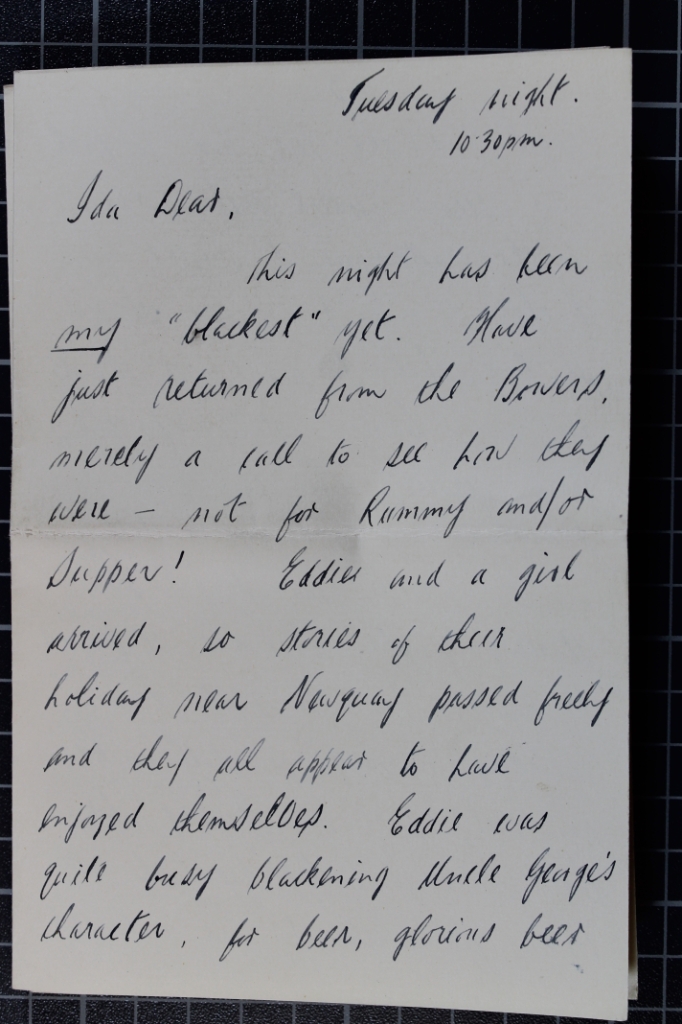 Tuesday night.
10.30pm.
Ida Dear,
This night has been
my "blackest" yet. Have
just returned from the Bowers,
merely a call to see how they
were – not for Rummy and/or
Supper! Eddie and a girl
arrived, so stories of their
holiday near Newquay passed freely
and they all appear to have
enjoyed themselves. Eddie was
quite busy blackening Uncle George's
character, for beer, glorious beer